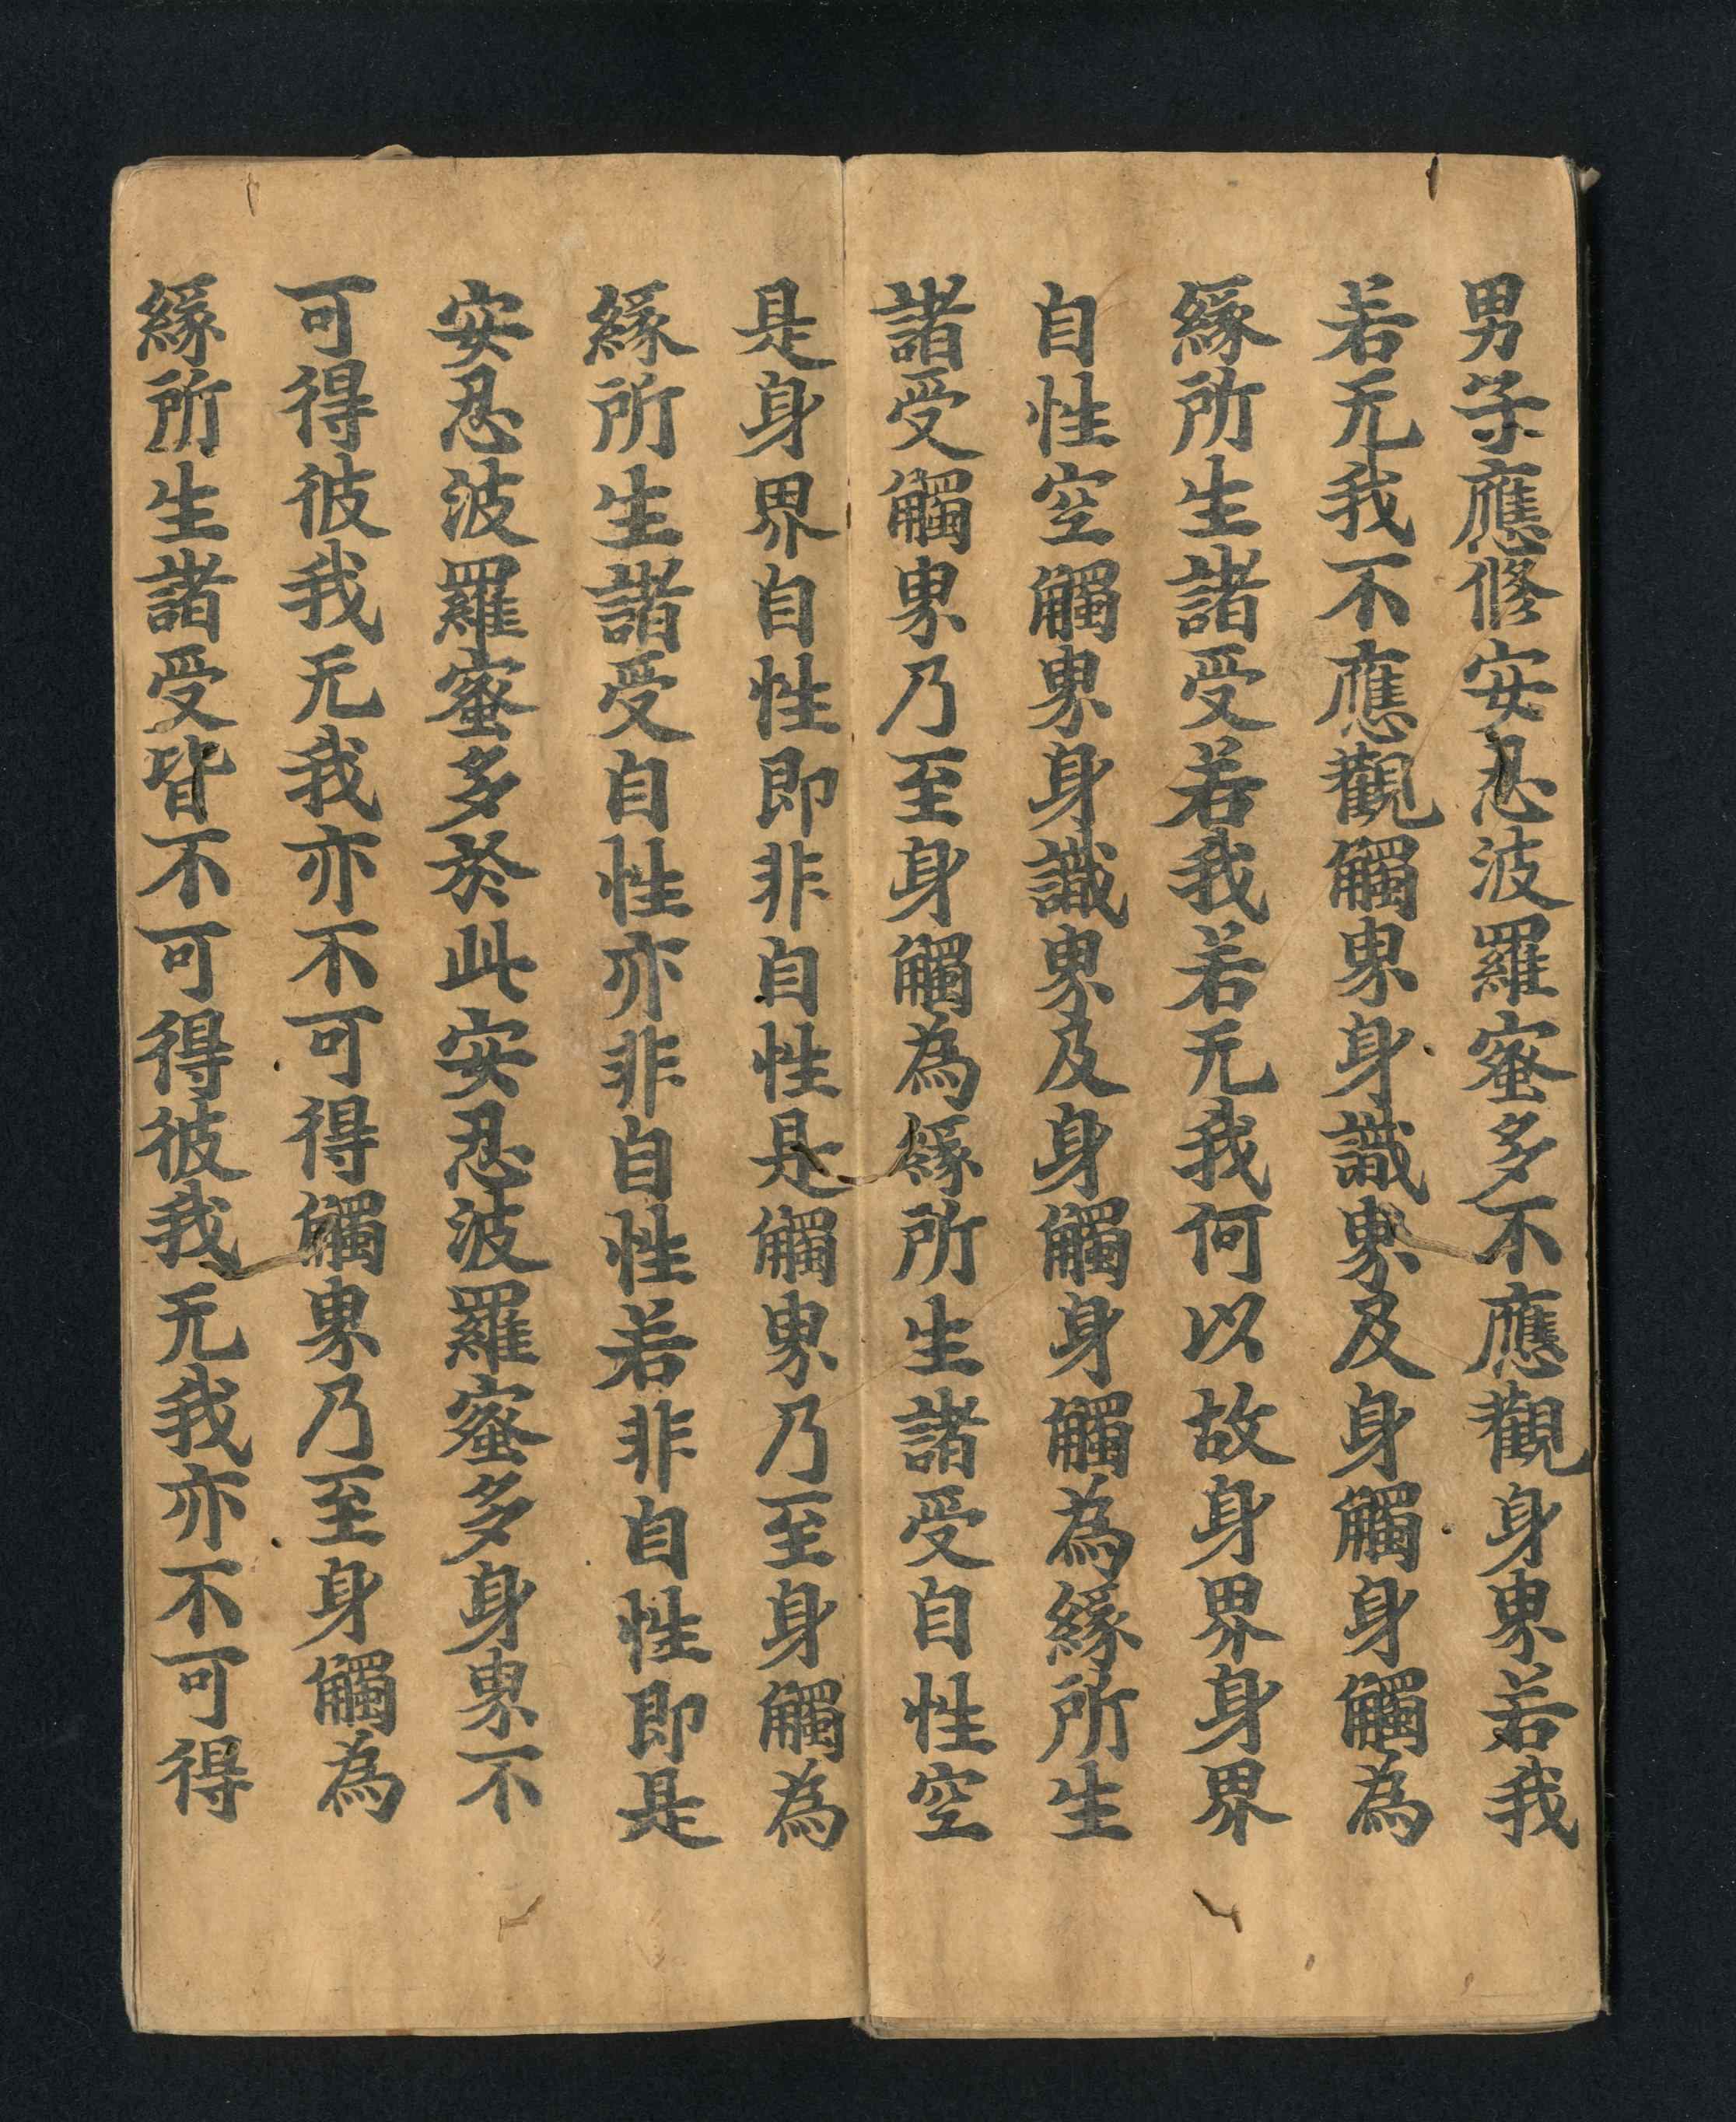 男子應修安忍波羅蜜多不應觀身畍若我
若无我不應觀觸畍身識畍及身觸身觸為
緣所生諸受若我若无我何以故身界身界
自性空觸畍身識畍及身觸身觸為緣所生
諸受觸畍乃至身觸為緣所生諸受自性空
是身界自性即非自性是觸畍乃至身觸為
緣所生諸受自性亦非自性若非自性即是
安忍波羅蜜多於此安忍波羅蜜多身畍不
可得彼我无我亦不可得觸畍乃至身觸為
緣所生諸受皆不可得彼我无我亦不可得